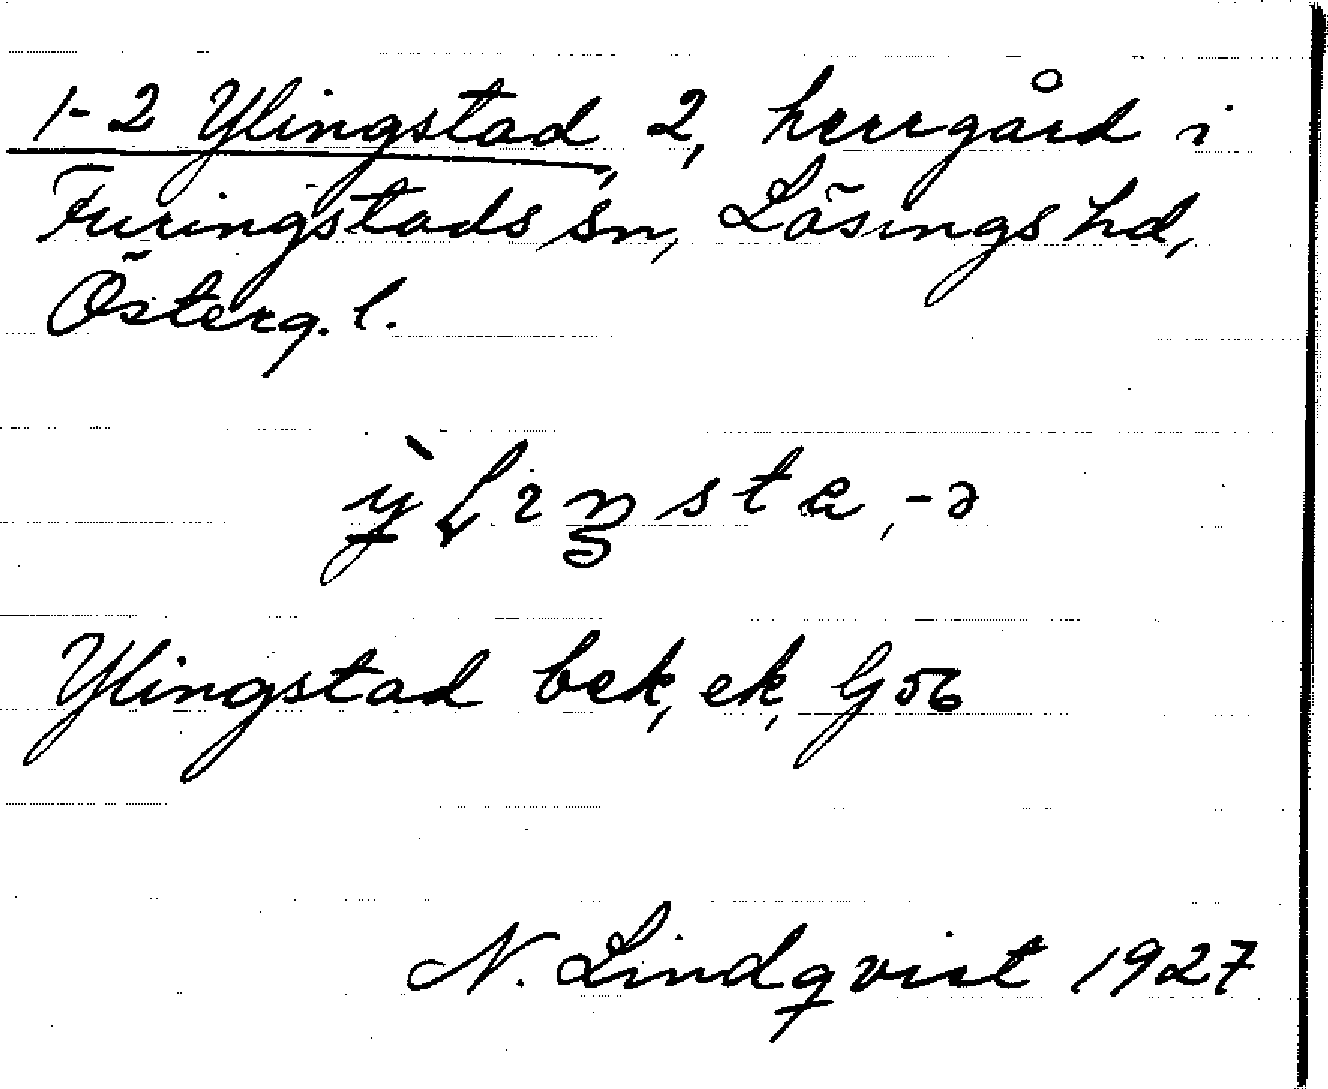 1-2 Ylingstad, 2, herrgård i
Furingstads sn, Lösings hd,
Österg. l.
Ylingstad bek, ek, G 56
N. Lindqvist 1927